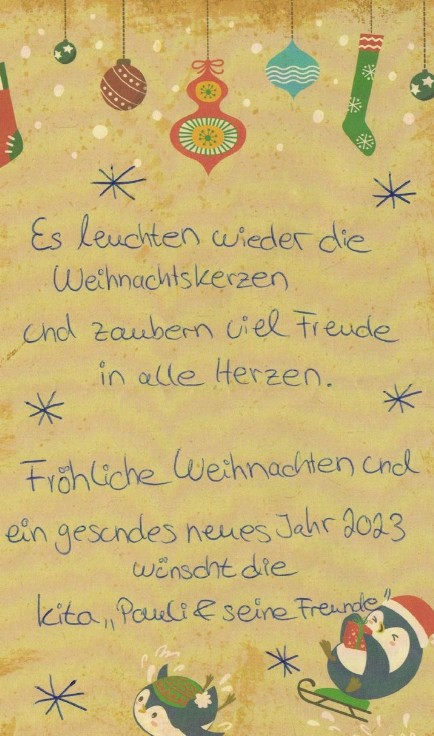 Es leuchten wieder die
Weihnachtskerzen
und zaubern viel Freude
in alle Herzen.
Fröhliche Weihnachten und
ein gesundes neues Jahr 2023
wünscht die
Kita „Pauli & seine Freunde"